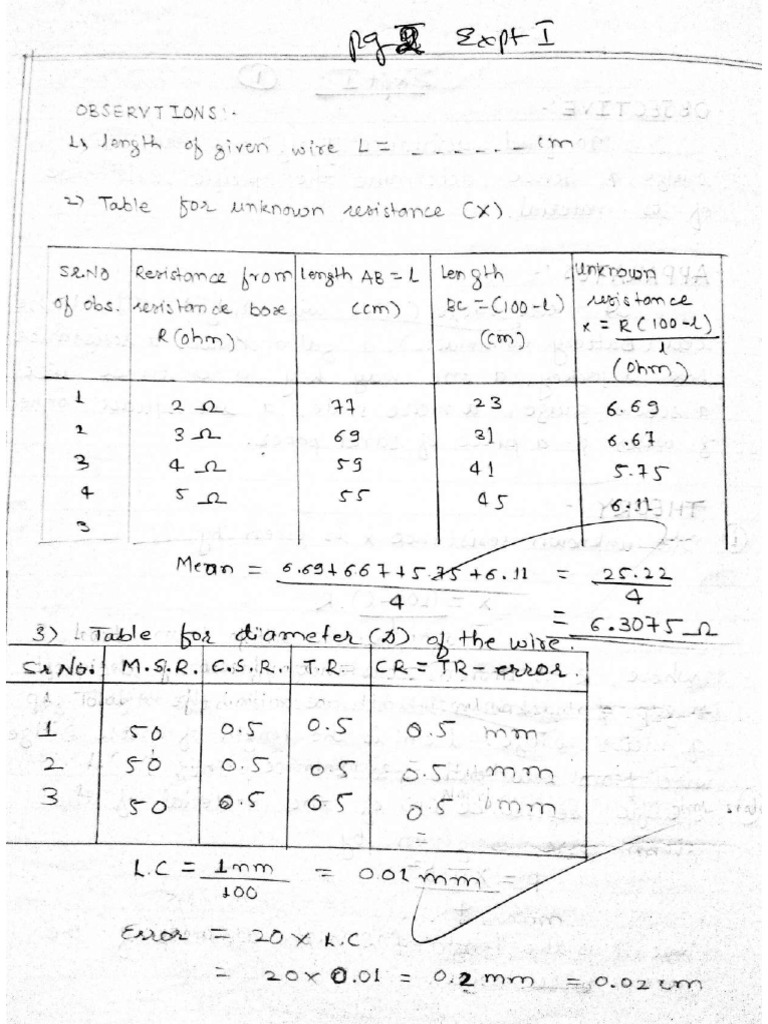 pg 2 Expt I
OBSERVTIONS:-
1) length of given wire L = - - - - - - cm
2) Table for unknown resistance (X)
Sr.No of obs. | Resistance from resistance box R(ohm) | length AB = l (cm) | length BC = (100-l) (cm) | Unknown resistance x = R(100-l)/l (Ohm)
1 2 Ω 77 23 6.69
2 3 Ω 69 31 6.67
3 4 Ω 59 41 5.75
4 5 Ω 55 45 6.11
3
Mean = 6.69+667+5.75+6.11/4 = 25.22/4
= 6.3075 Ω
3) Table for diameter (D) of the wire.
Sr No. M.S.R. C.S.R. T.R CR = TR - error
1 50 0.5 0.5 0.5 mm
2 50 0.5 0.5 0.5 mm
3 50 0.5 0.5 0.5 mm
L.C = 1mm/100 = 0.01 mm
Error = 20 × L.C
= 20 × 0.01 = 0.2 mm = 0.02 cm